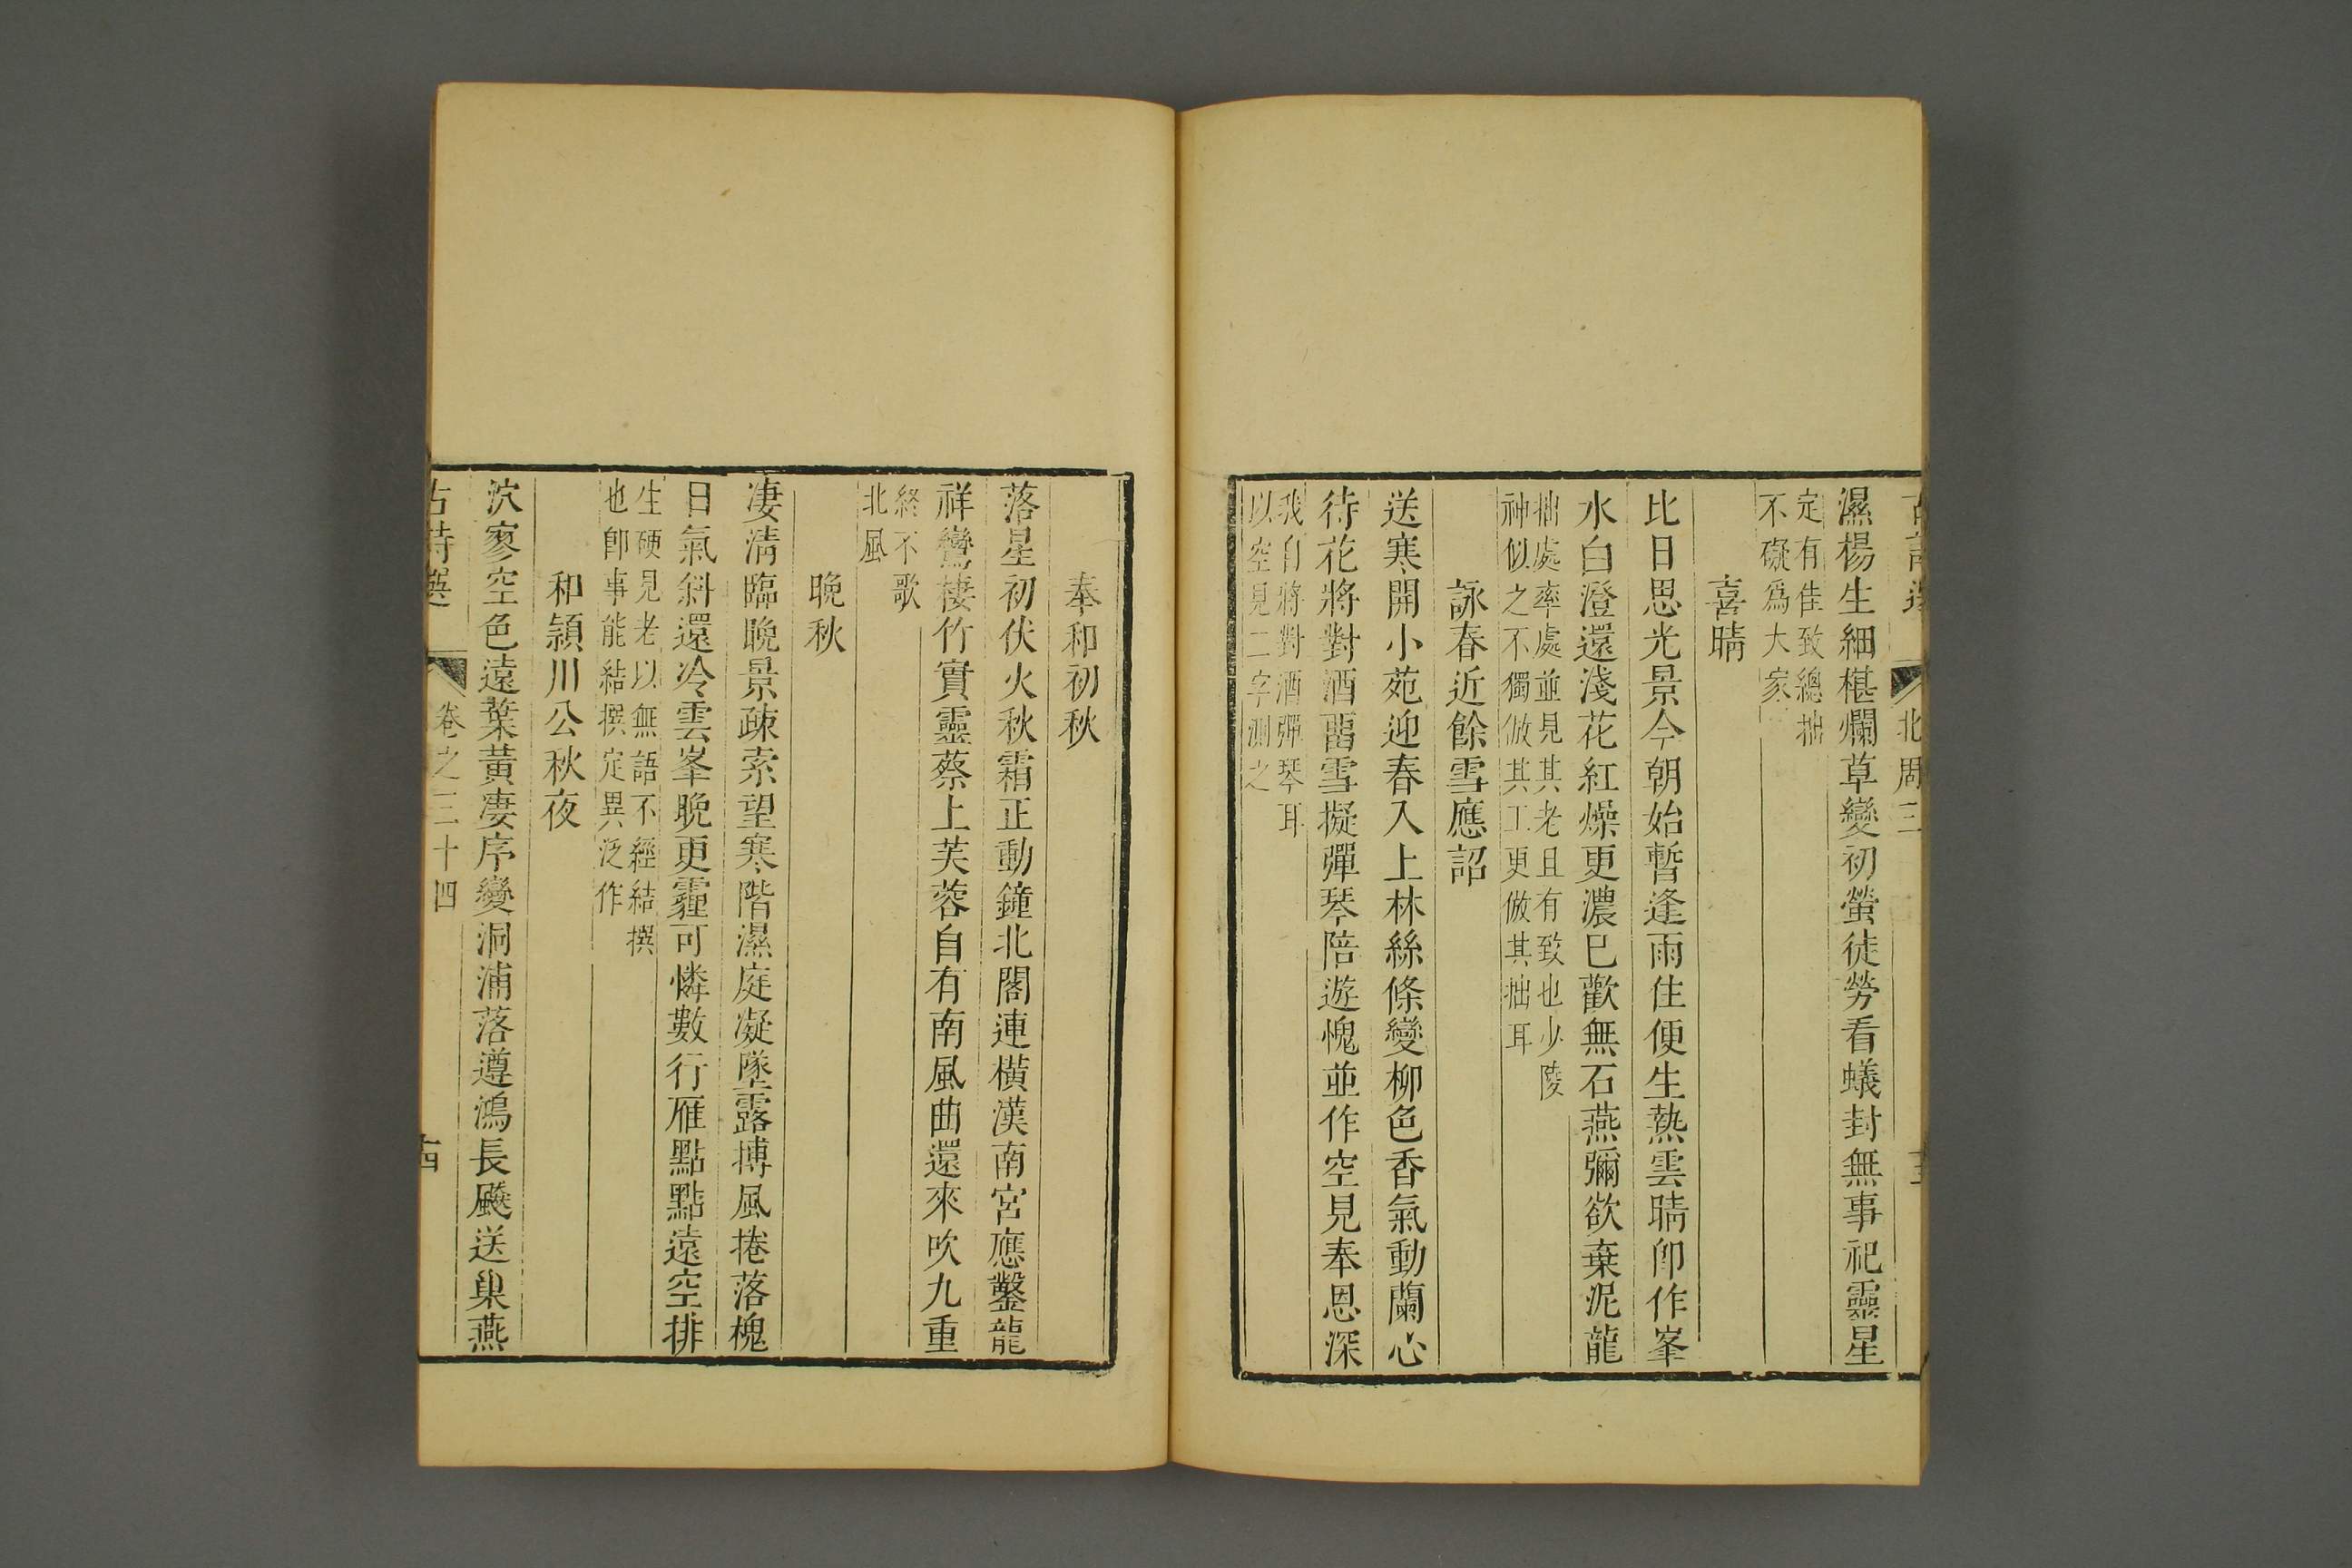 古詩選 北周三
濕楊生細椹爛草變初螢徒勞看蟻封無事祀靈星
定有佳致總拙
不礙爲大家
喜晴
比日思光景今朝始暫逢雨住便生熱雲晴卽作峯
水白澄還淺花紅燥更濃巳歡無石燕彌欲棄泥龍
拙處率處並見其老且有致也少陵
神似之不獨倣其工更倣其拙耳
詠春近餘雪應詔
送寒開小苑迎春入上林絲條變柳色香氣動蘭心
待花將對酒畱雪擬彈琴陪遊愧並作空見奉恩深
我自將對酒彈琴耳
以空見二字測之
奉和初秋
落星初伏火秋霜正動鐘北閣連橫漢南宮應鑿龍
祥鸞棲竹實靈蔡上芙蓉自有南風曲還來吹九重
終不歌
北風
晚秋
凄清臨晚景疎索望寒階濕庭凝墜露摶風捲落槐
日氣斜還冷雲峯晚更霾可憐數行雁點點遠空排
生硬見老以無語不經結撰
也卽事能結撰定異泛作
和潁川公秋夜
泬寥空色遠葉黃凄序變洞浦落遵鴻長飈送巢燕
古詩選 卷之三十四 十四